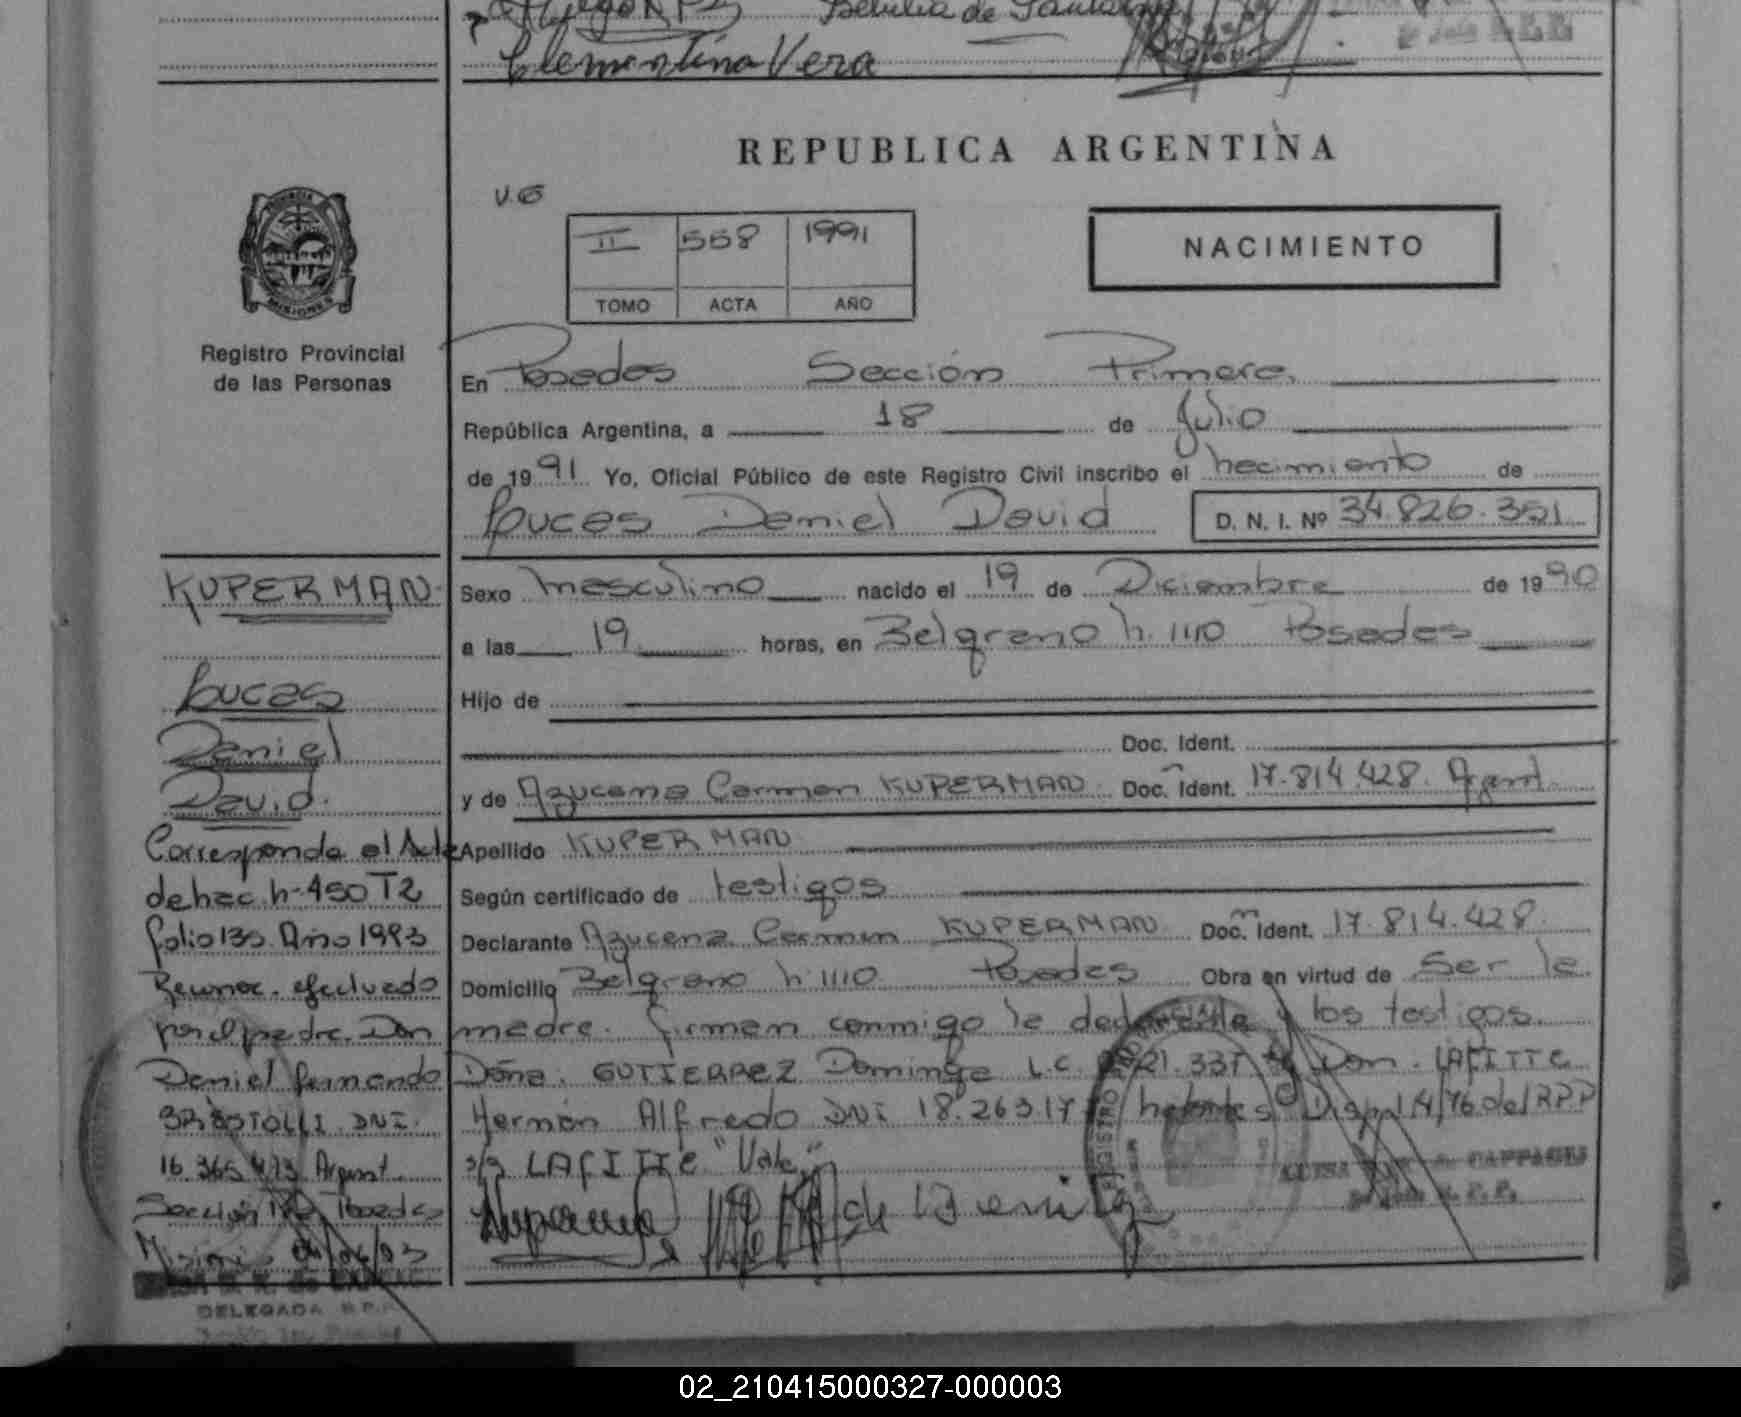 Clementina Vera
REPUBLICA ARGENTINA
II 558 1991
TOMO ACTA AÑO
NACIMIENTO
PROVINCIA
MISIONES
Registro Provincial
de las Personas
En Posadas Sección Primera
República Argentina, a 18 de Julio
de 1991 Yo, Oficial Público de este Registro Civil inscribo el nacimiento de
Lucas Daniel David D. N. I. Nº 34.826.351
Sexo masculino nacido el 19 de Diciembre de 1990
a las 19 horas, en Belgrano n. 1110 Posadas
Hijo de
Doc. Ident.
y de Azucena Carmen KUPERMAN Doc. Ident. 17.814.428. Argent.
Apellido KUPERMAN
Según certificado de testigos
Declarante Azucena Carmen KUPERMAN Doc. Ident. 17.814.428.
Domicilio Belgrano n. 1110 Posadas Obra en virtud de Ser la
madre. firman conmigo la declarante y los testigos.
Doña. GUTIERREZ Dominga L.C. Don. LAFITTE
Hernán Alfredo DNI 18.263.17 Disp 14/76 del RPP
s/r LAFITTE "Vale"
KUPERMAN
Lucas
Daniel
David.
Corresponde al Acta
de nac. n-450 T2
folio 130. Año 1993
Reconoc. efectuado
por el padre. Don
Daniel fernando
DNI.
16.365.473 Argent.
Sección 1ra Posadas
Misiones 04/06/93
DELEGADA R.P.P.
02_210415000327-000003